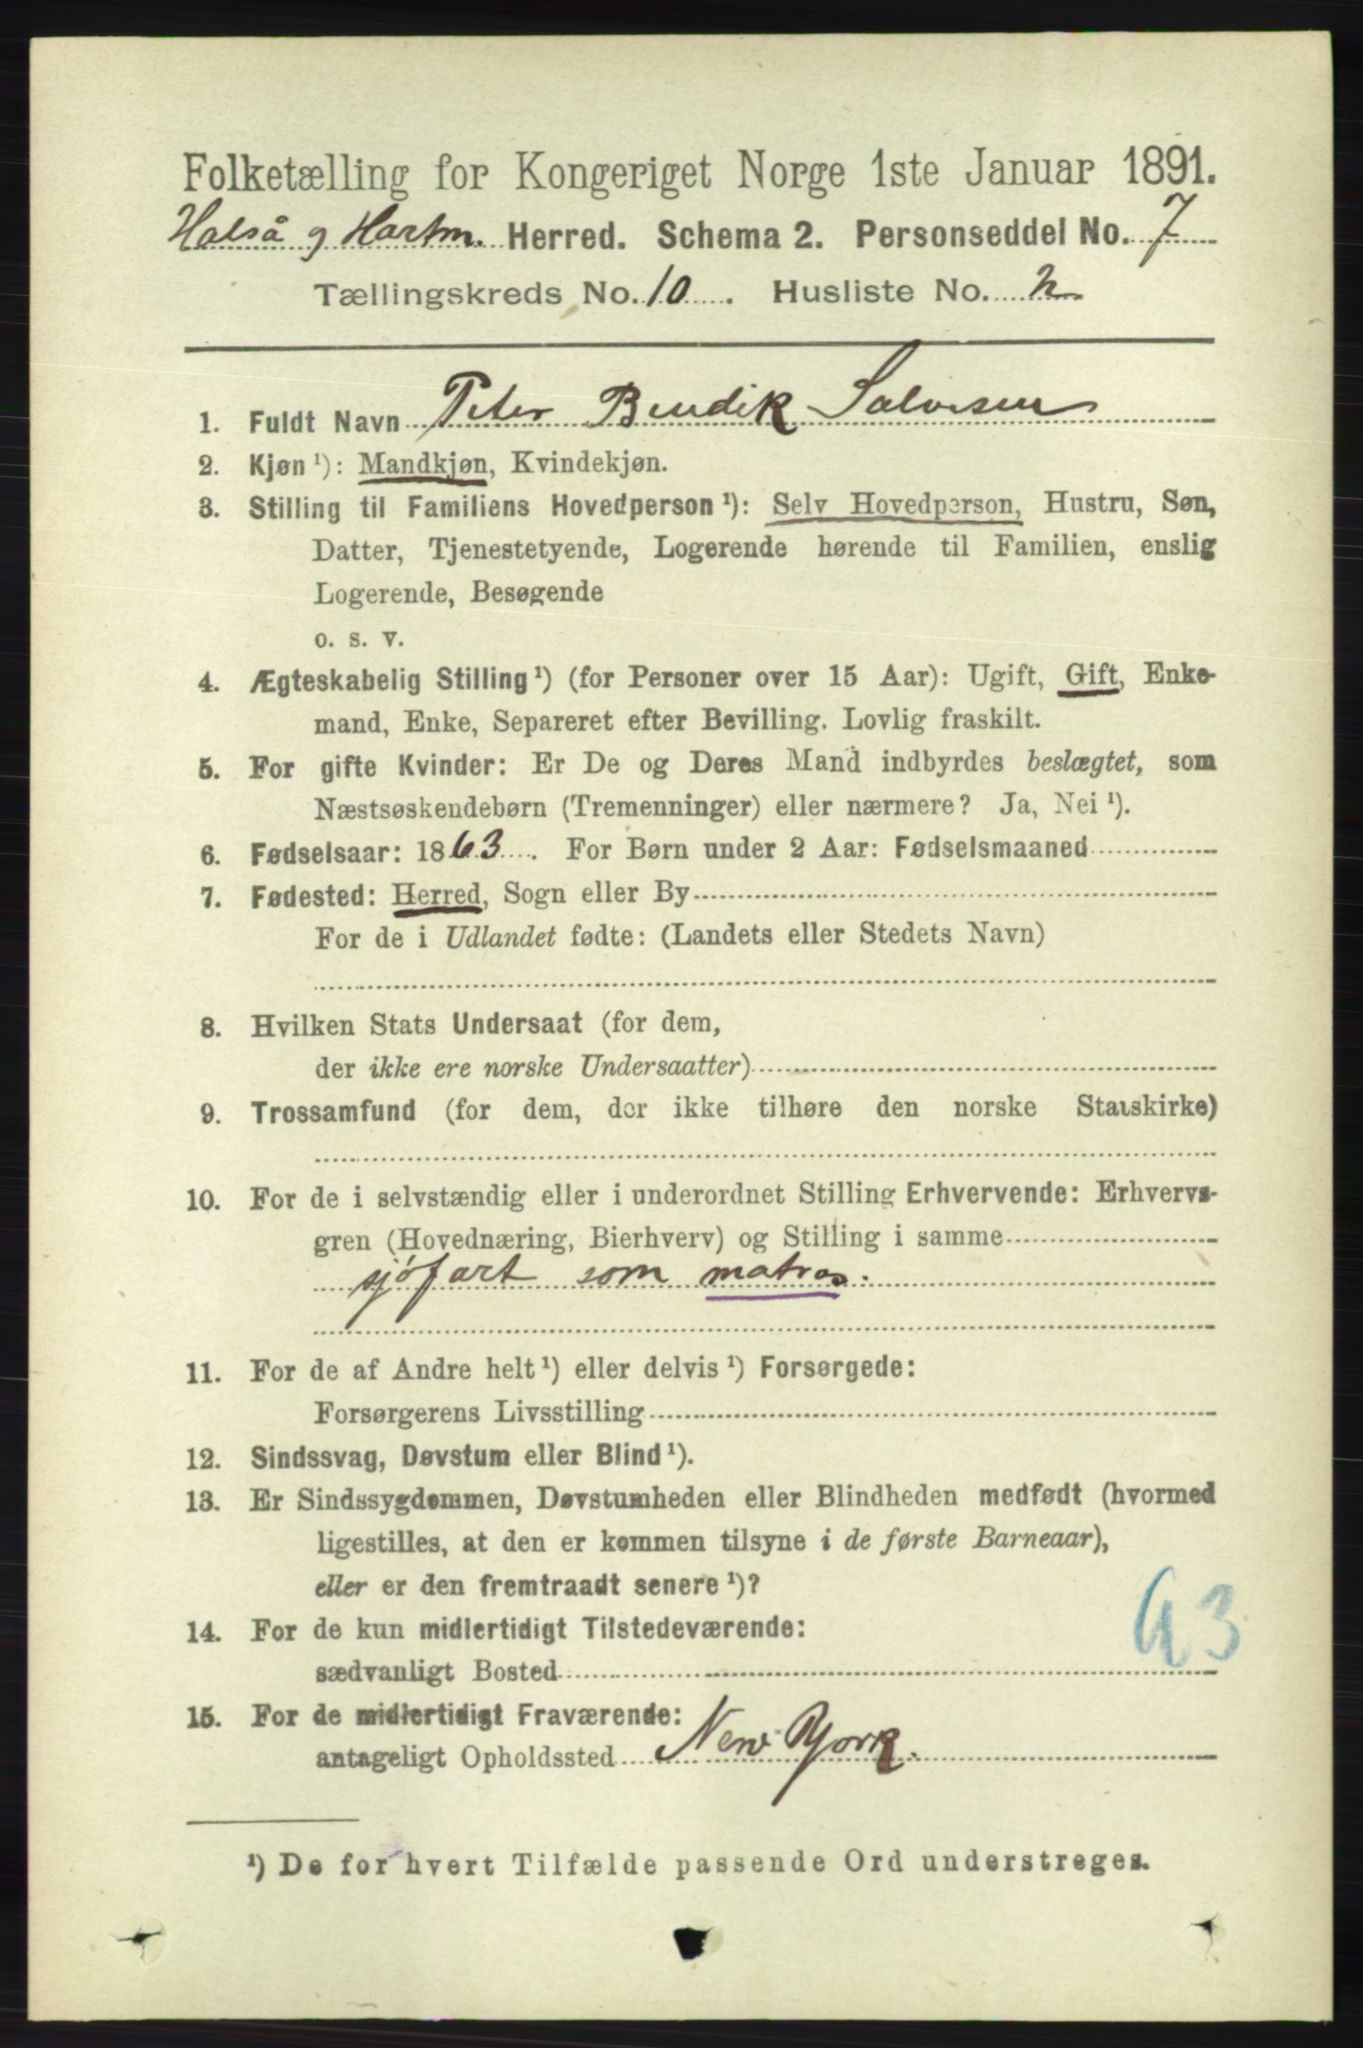 Folketælling for Kongeriget Norge 1ste Januar 1891.
Halså og Hartm. Herred. Schema 2. Personseddel No. 7
Tællingskreds No. 10. Husliste No. 2
1. Fuldt Navn Peter Bendik Salvesen
2. Kjøn ¹): Mandkjøn, Kvindekjøn.
3. Stilling til Familiens Hovedperson ¹): Selv Hovedperson, Hustru, Søn,
Datter, Tjenestetyende, Logerende hørende til Familien, enslig
Logerende, Besøgende
o. s. v.
4. Ægteskabelig Stilling ¹) (for Personer over 15 Aar): Ugift, Gift, Enke-
mand, Enke, Separeret efter Bevilling. Lovlig fraskilt.
5. For gifte Kvinder: Er De og Deres Mand indbyrdes beslægtet, som
Næstsøskendebørn (Tremenninger) eller nærmere? Ja, Nei ¹).
6. Fødselsaar: 1863. For Børn under 2 Aar: Fødselsmaaned
7. Fødested: Herred, Sogn eller By
For de i Udlandet fødte: (Landets eller Stedets Navn)
8. Hvilken Stats Undersaat (for dem,
der ikke ere norske Undersaatter)
9. Trossamfund (for dem, der ikke tilhøre den norske Statskirke)
10. For de i selvstændig eller i underordnet Stilling Erhvervende: Erhvervs-
gren (Hovednæring, Bierhverv) og Stilling i samme
sjøfart som matros.
11. For de af Andre helt ¹) eller delvis ¹) Forsørgede:
Forsørgerens Livsstilling
12. Sindssvag, Døvstum eller Blind ¹).
13. Er Sindssygdommen, Døvstumheden eller Blindheden medfødt (hvormed
ligestilles, at den er kommen tilsyne i de første Barneaar),
eller er den fremtraadt senere ¹)?
14. For de kun midlertidigt Tilstedeværende:
sædvanligt Bosted
15. For de midlertidigt Fraværende:
antageligt Opholdssted New York.
¹) De for hvert Tilfælde passende Ord understreges.